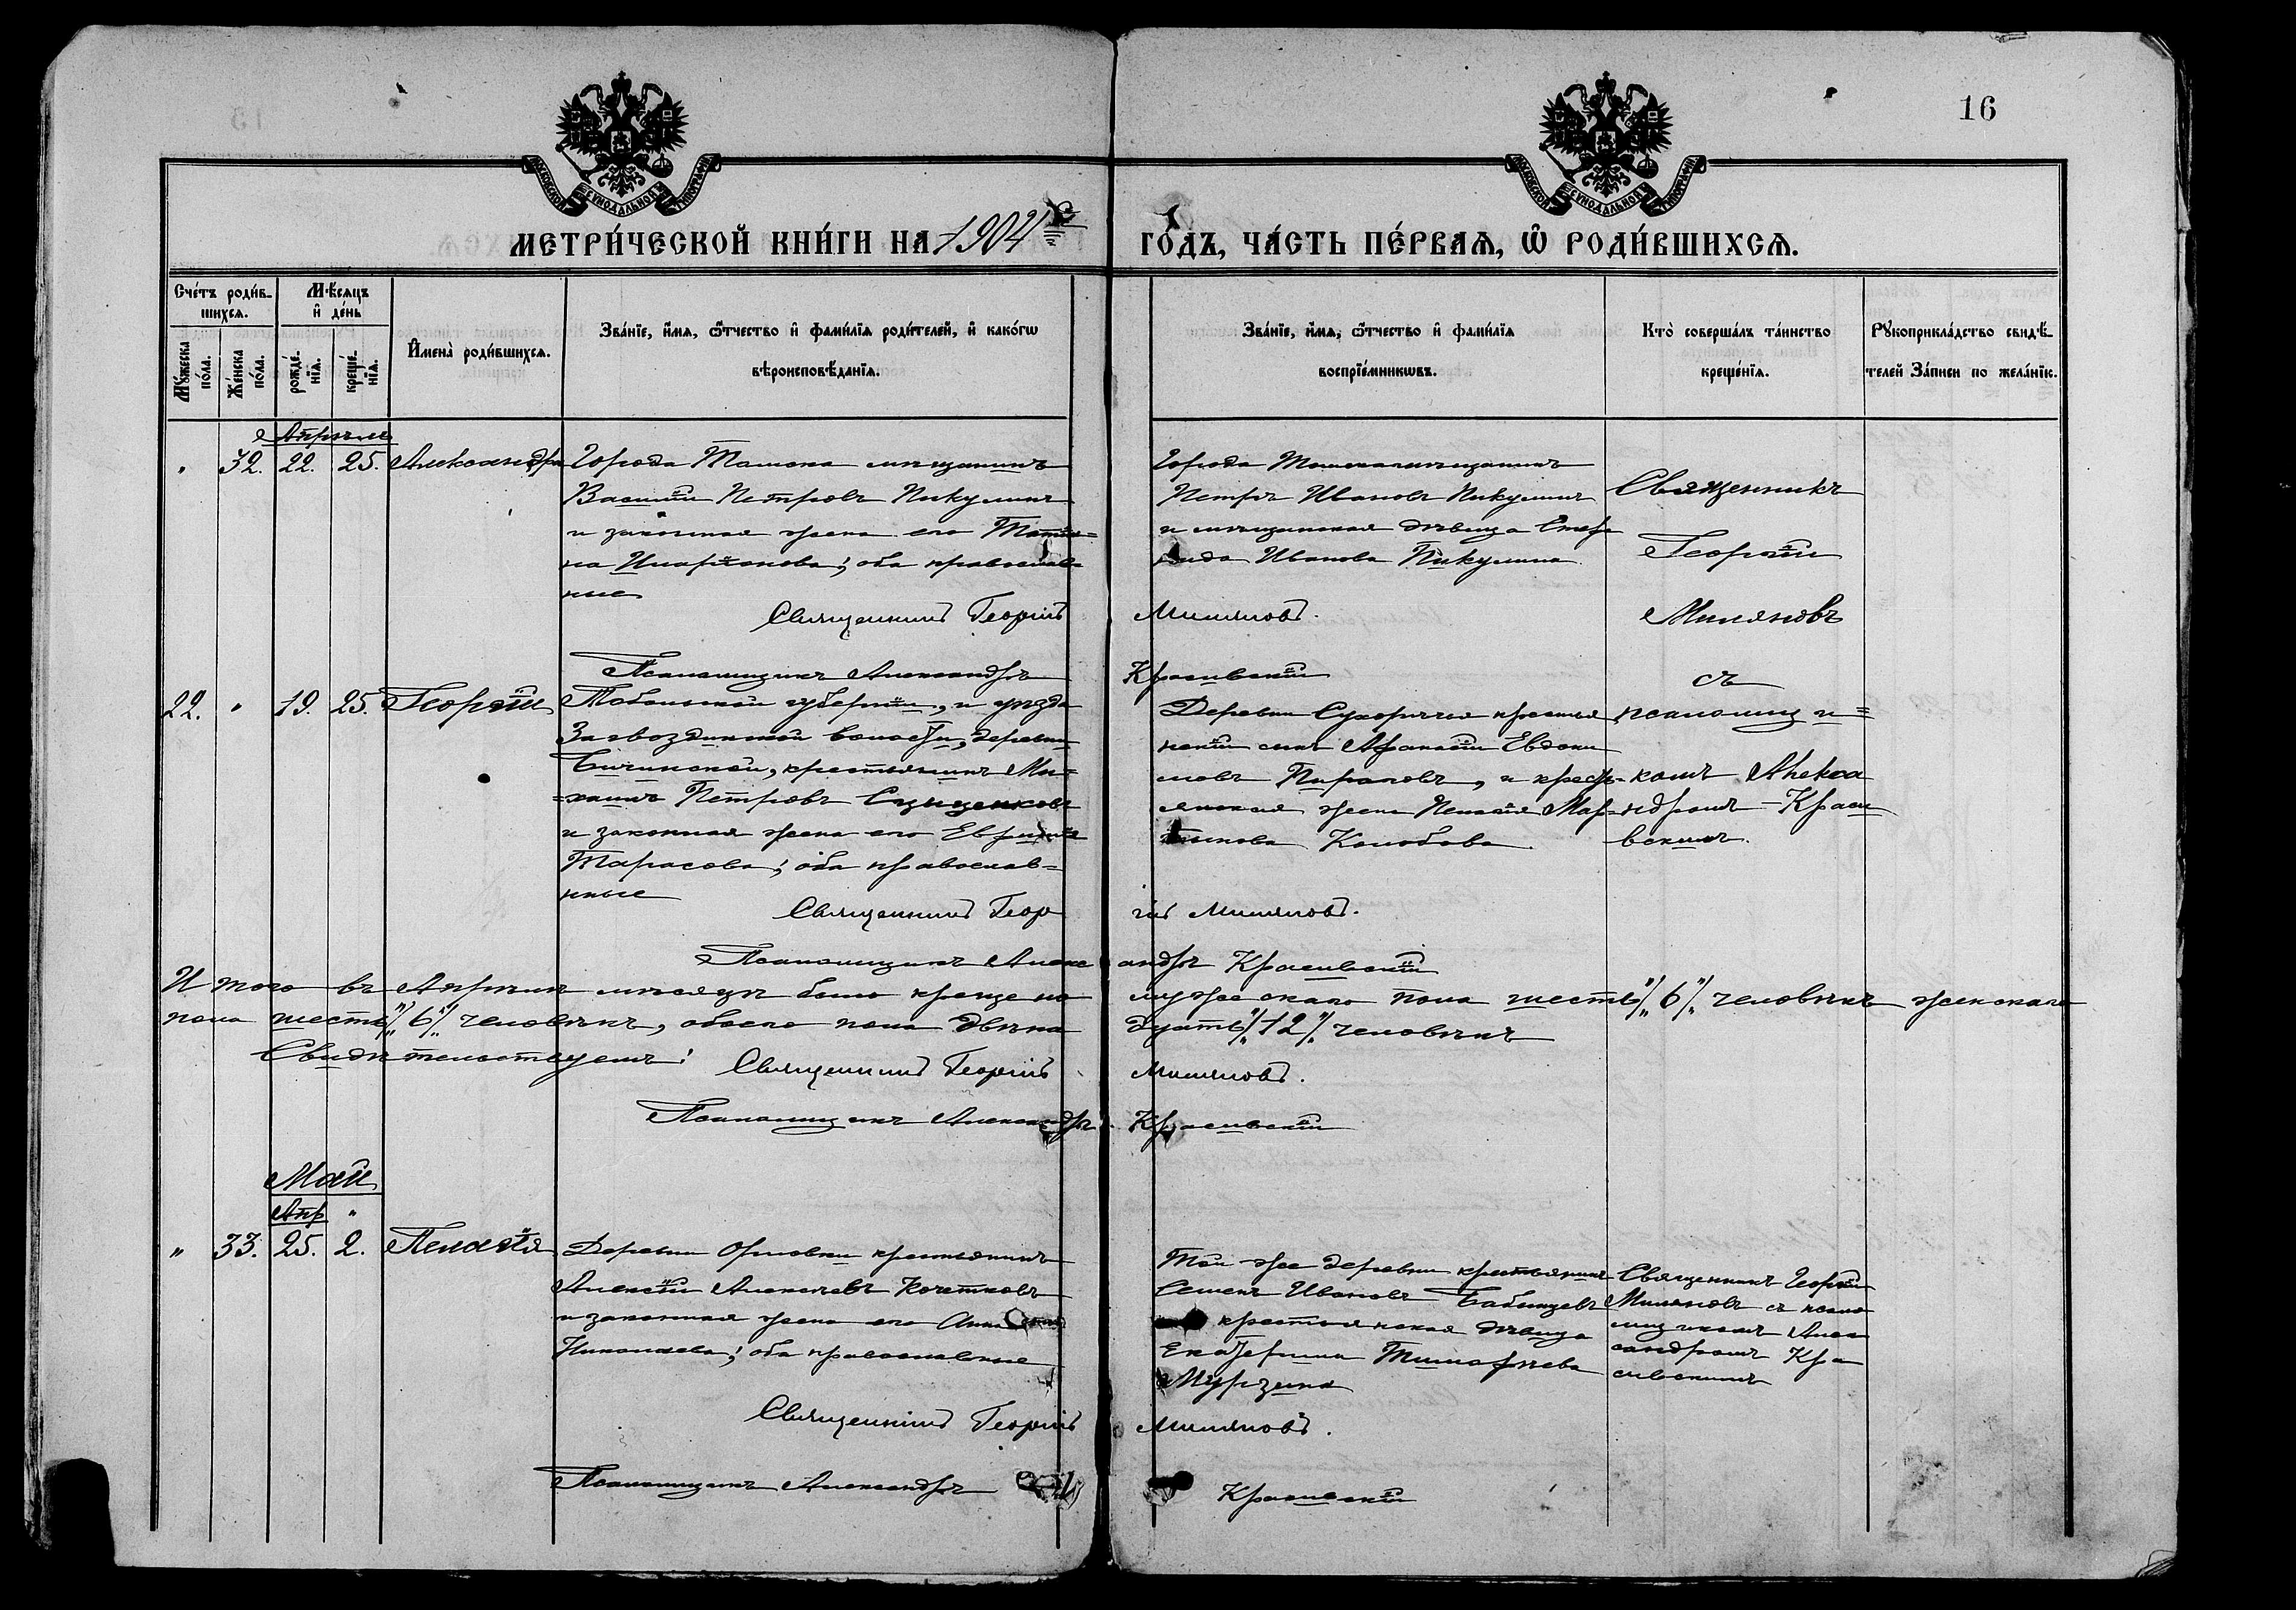 16
МЕТРИ́ЧЕСКОЙ КНИ́ГИ НА 1904й
ГО́ДЪ, ЧА́СТЬ ПЕ́РВАѦ, Ѿ РОДИ́ВШИХСѦ.
Сче́тъ роди́в-
шихсѧ.
Мꙋжеска
по́ла.
Же́нска
по́ла.
Мѣ́сѧцъ
и҆ де́нь
рожде́-
нїѧ.
креще́-
нїѧ.
И҆мена̀ роди́вшихсѧ.
Зва́нїе, и҆́мѧ, ѻ҆́тчество и҆ фамѝлїѧ роди́телей, и҆ како́гѡ
вѣроисповѣ́данїѧ.
Зва́нїе, и҆́мѧ, ѻ҆́тчество и҆ фамѝлїѧ
воспрїе́мникѡвъ.
Кто̀ соверша́лъ та́инство
креще́нїѧ.
Рꙋкоприкла́дство свидѣ́-
телей За́писи по жела́нїю.
Апрѣль
" 32. 22. 25. Александра
Города Томска мѣщанинъ
Василій Петровъ Пикулинъ
и законная жена его Татья=
на Иларіонова; оба православ-
ные
Города Томска мѣщанинъ
Петръ Ивановъ Пикулинъ
и мѣщанская дѣвица
Иванова Пикулина
Священникъ
Георгій
Миляновъ
Священникъ Георгій Миляновъ.
Псаломщикъ Александръ Красивскій
22. " 19. 25. Георгій
Тобольской губерніи, и уѣзда
Загвоздинской волости, деревни
Бичинской, крестьянинъ Ми=
=хаилъ Петровъ
и законная жена его
Тарасова; оба православ=
ные
Деревни Сухоречья крестья
нскій сынъ Афанасій Евдоки
мовъ , и крест=
янская жена Пелагія Мар=
тынова Колобова
съ
псаломщи=
комъ Алекса
ндромъ Краси
вскимъ.
Священникъ Георгій Миляновъ.
Псаломщикъ Александръ Красивскій
Итого въ Апрѣлѣ мѣсяцѣ было крещено мужескаго пола шесть "/„ 6 "/„ человѣкъ женскаго
пола шесть "/„ 6 "/„ человѣкъ, обоего пола двѣна дцать "/„ 12 "/„ человѣкъ
Свидѣтельствуемъ: Священникъ Георгій Миляновъ.
Псаломщикъ Александръ Красивскій
Май
Апр "
" 33. 25. 2. Пелагія
Деревни Орловки крестьянинъ
Алексій Алексѣевъ Кочетковъ
и законная жена его Анна
Николаева; оба православные
Той же деревни крестьянинъ
Семенъ Ивановъ Бабинцевъ
крестьянская дѣвица
Екатерина Тимофѣева
Мурзина
Священникъ Георгій
Миляновъ съ псало
мщикомъ Алек
сандромъ Кра
сивскимъ
Священникъ Георгій Миляновъ.
Псаломщикъ Александръ Красивскій